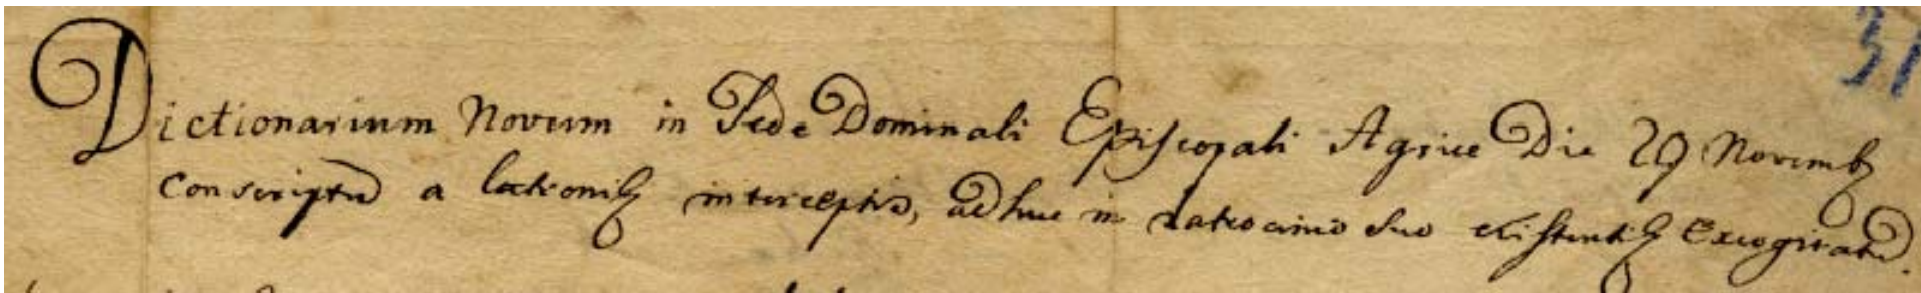 31
Dictionarium Novum in Sede Dominali Episcopali Agriae Die 29 Novembꝫ
Conscriptū a latronibꝫ interceptis, adhuc in Latrocinio suo existentibꝫ Excogitatū.